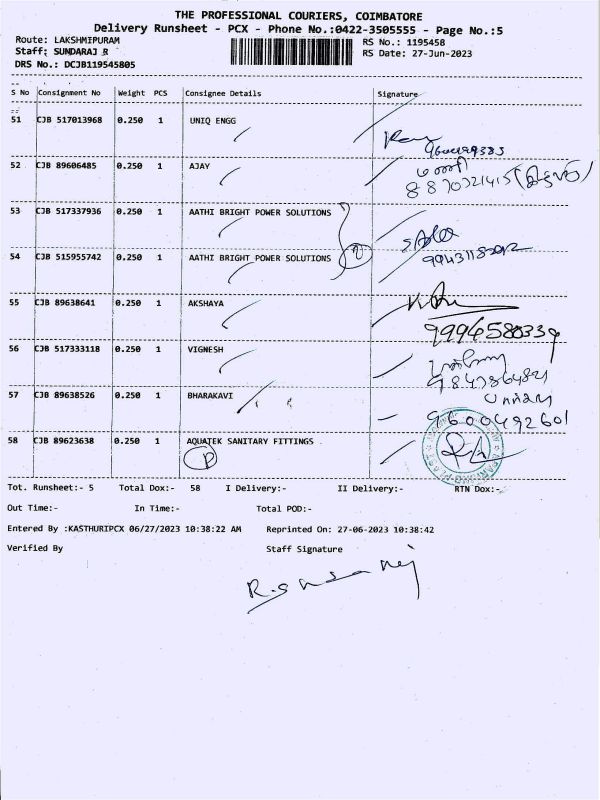 THE PROFESSIONAL COURIERS, COIMBATORE
Delivery Runsheet - PCX - Phone No.:0422-3505555 - Page No.:5
Route: LAKSHMIPURAM RS No.: 1195458
Staff: SUNDARAJ R RS Date: 27-Jun-2023
DRS No.: DCJB119545805
S No Consignment No Weight PCS Consignee Details Signature
51 CJB 517013968 0.250 1 UNIQ ENGG
52 CJB 89606485 0.250 1 AJAY
மணி
8870721415
53 CJB 517337936 0.250 1 AATHI BRIGHT POWER SOLUTIONS
54 CJB 515955742 0.250 1 AATHI BRIGHT POWER SOLUTIONS 2
55 CJB 89638641 0.250 1 AKSHAYA
9994580339
56 CJB 517333118 0.250 1 VIGNESH
57 CJB 89638526 0.250 1 BHARAKAVI
9600492601
58 CJB 89623638 0.250 1 AQUATEK SANITARY FITTINGS
P
Tot. Runsheet:- 5 Total Dox:- 58 I Delivery:- II Delivery:- RTN Dox:-
Out Time:- In Time:- Total POD:-
Entered By :KASTHURIPCX 06/27/2023 10:38:22 AM Reprinted On: 27-06-2023 10:38:42
Verified By Staff Signature